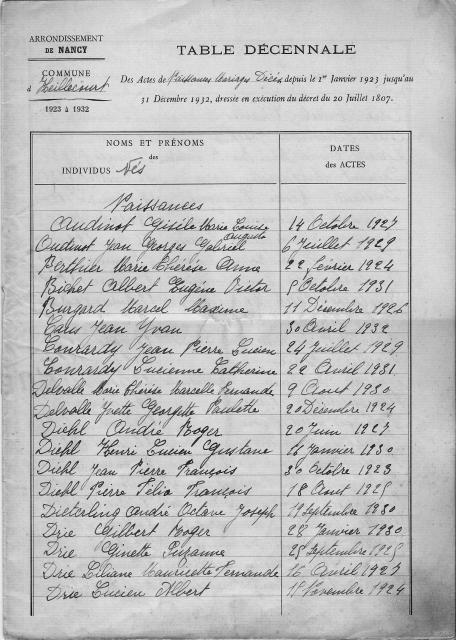 ARRONDISSEMENT
DE NANCY
TABLE DÉCENNALE
COMMUNE
d'Heillecourt
1923 à 1932
Des Actes de Naissances Mariages Décès depuis le 1er Janvier 1923 jusqu'au
31 Décembre 1932, dressée en exécution du décret du 20 Juillet 1807.
NOMS ET PRÉNOMS
des
INDIVIDUS Nés
DATES
des ACTES
Naissances
Audinot Gisèle Marie Louise Augusta 14 Octobre 1927
Oudinot Jean Georges Gabriel 6 Juillet 1929
Berthier Marie Thérèse Anne 22 février 1924
Bichet Albert Eugène Victor 5 Octobre 1931
Burgard Marcel Maxime 11 Décembre 1926
Jean Yvan 30 avril 1932
Conrardy Jean Pierre Lucien 24 Juillet 1929
Conrardy Lucienne Catherine 22 avril 1931
Delvolle Marie Thérèse Marcelle Fernande 9 Aout 1930
Delvolle Yvette Georgette Paulette 20 Décembre 1924
Diehl André Roger 20 Juin 1927
Diehl Henri Lucien Gustave 16 Janvier 1930
Diehl Jean Pierre François 30 Octobre 1923
Diehl Pierre Félix François 18 Aout 1925
Dieterling André Octave Joseph 19 septembre 1930
Drie Gilbert Roger 28 Janvier 1930
Drie Ginette Suzanne 25 Septembre 1925
Drie Liliane Mauricette Fernande 16 Avril 1927
Drie Lucien Albert Novembre 1924